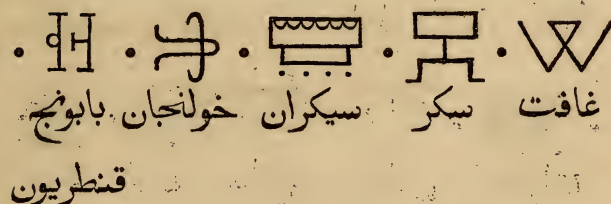 غافت سكر سيكران خولنجان بابونج
قنطريون